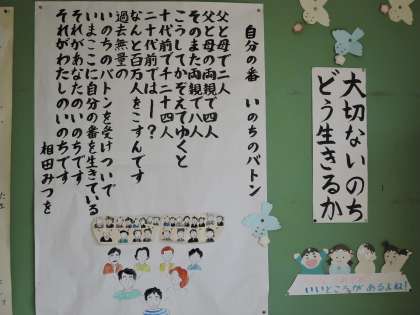 大切ないのち
どう生きるか
自分の番　いのちのバトン
父と母で二人
父と母の両親で四人
そのまた両親で八人
こうしてかぞえてゆくと
十代前で千二十四人
二十代前では―？
なんと百万人をこすんです
過去無量の
いのちのバトンを受けついで
いまここに自分の番を生きている
それがあなたのいのちです
それがわたしのいのちです
相田みつを
いいところがあるよね!